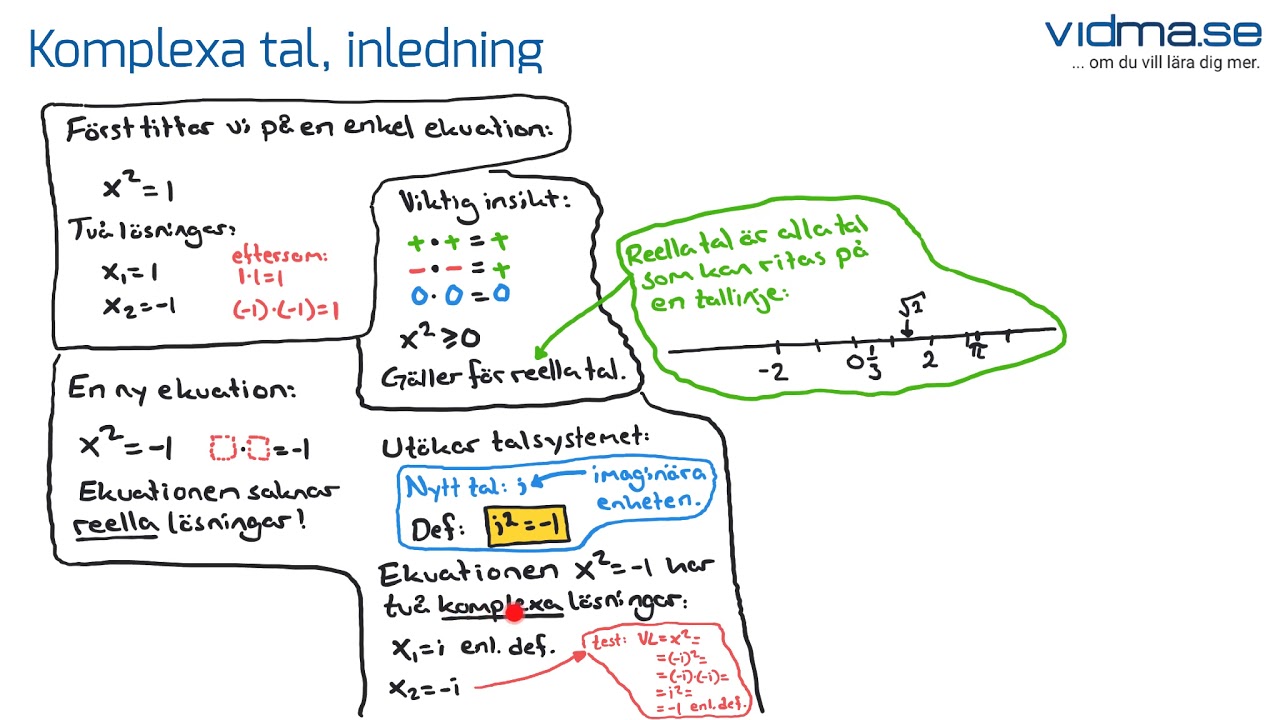 Komplexa tal, inledning
vidma.se
... om du vill lära dig mer.
Först tittar vi på en enkel ekvation:
x² = 1
Två lösningar:
x₁ = 1
x₂ = -1
eftersom:
1·1=1
(-1)·(-1)=1
Viktig insikt:
+ · + = +
- · - = +
0 · 0 = 0
x² ≥ 0
Gäller för reella tal.
Reella tal är alla tal
som kan ritas på
en tallinje:
√2
-2 0 1/3 2 π
En ny ekvation:
x² = -1 □·□ = -1
Ekvationen saknar
reella lösningar!
Utökar talsystemet:
Nytt tal: i
imaginära
enheten.
Def: i² = -1
Ekvationen x² = -1 har
två komplexa lösningar:
x₁ = i enl. def.
x₂ = -i
test: VL = x² =
= (-i)² =
= (-i)·(-i) =
= i² =
= -1 enl. def.